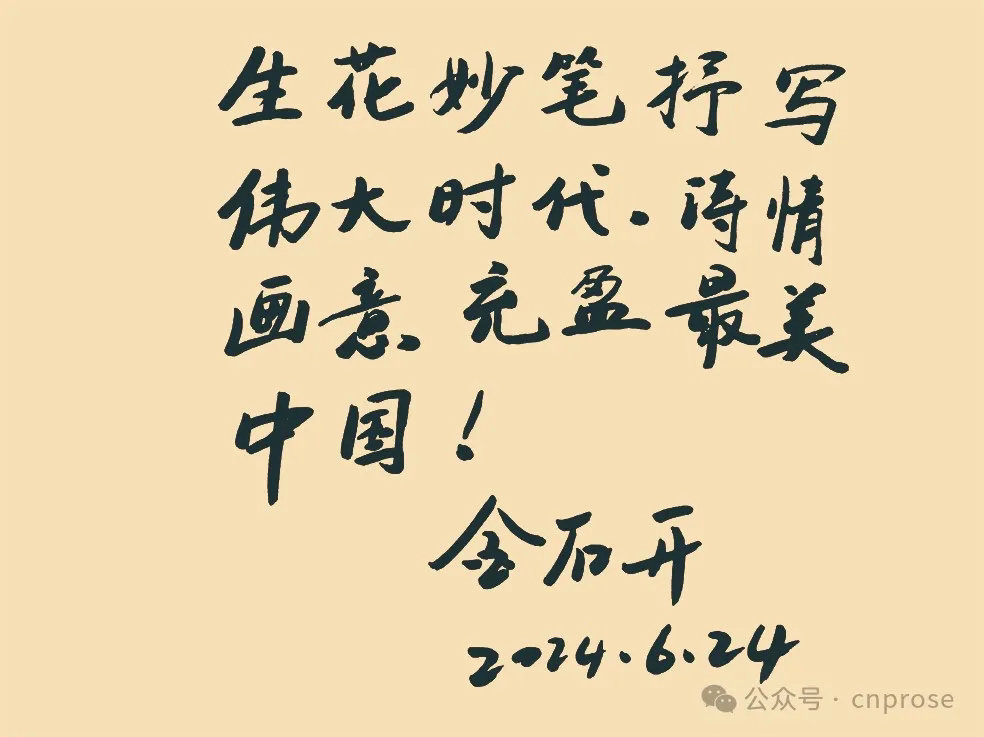 生花妙笔抒写
伟大时代.诗情
画意.充盈最美
中国！
金石开
2024.6.24
公众号 · cnprose